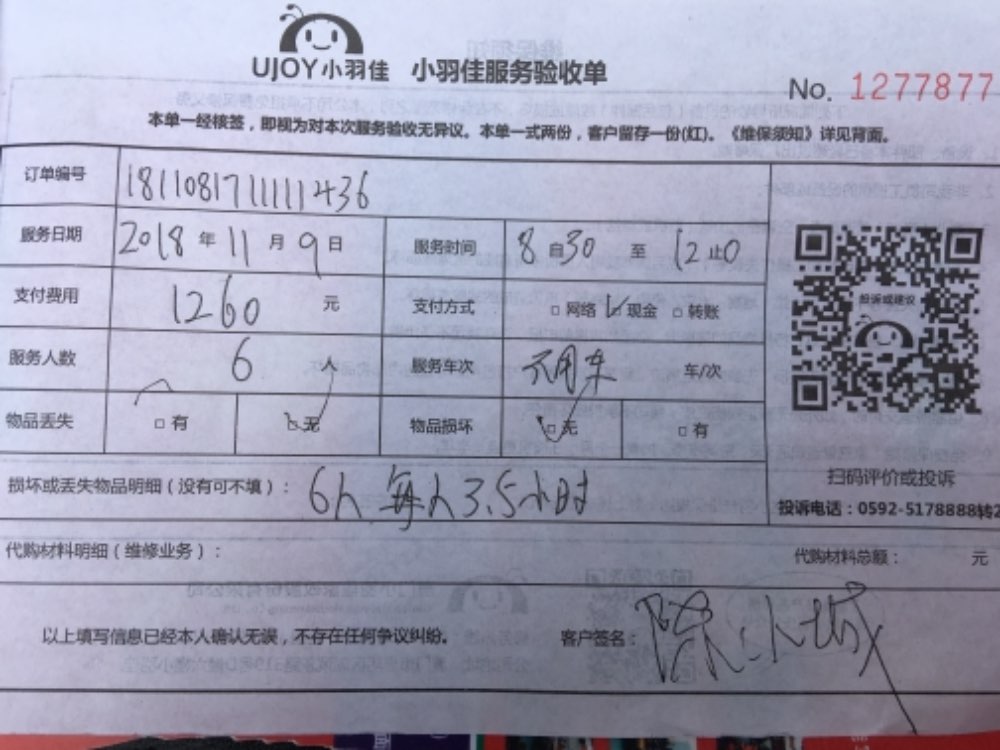 UJOY小羽佳 小羽佳服务验收单
No. 1277877
本单一经核签，即视为对本次服务验收无异议。本单一式两份，客户留存一份(红)。《维保须知》详见背面。
订单编号 18110817111111436
服务日期 2018年11月9日 服务时间 8自30至12止0
支付费用 1260元 支付方式 □网络 ☑现金 □转账
服务人数 6人 服务车次 不用车 车/次
物品丢失 □有 ☑无 物品损坏 ☑无 □有
投诉或建议
扫码评价或投诉
损坏或丢失物品明细（没有可不填）：6人每人3.5小时
投诉电话：0592-5178888转2
代购材料明细（维修业务）： 代购材料总额： 元
以上填写信息已经本人确认无误，不存在任何争议纠纷。 客户签名：陈小城